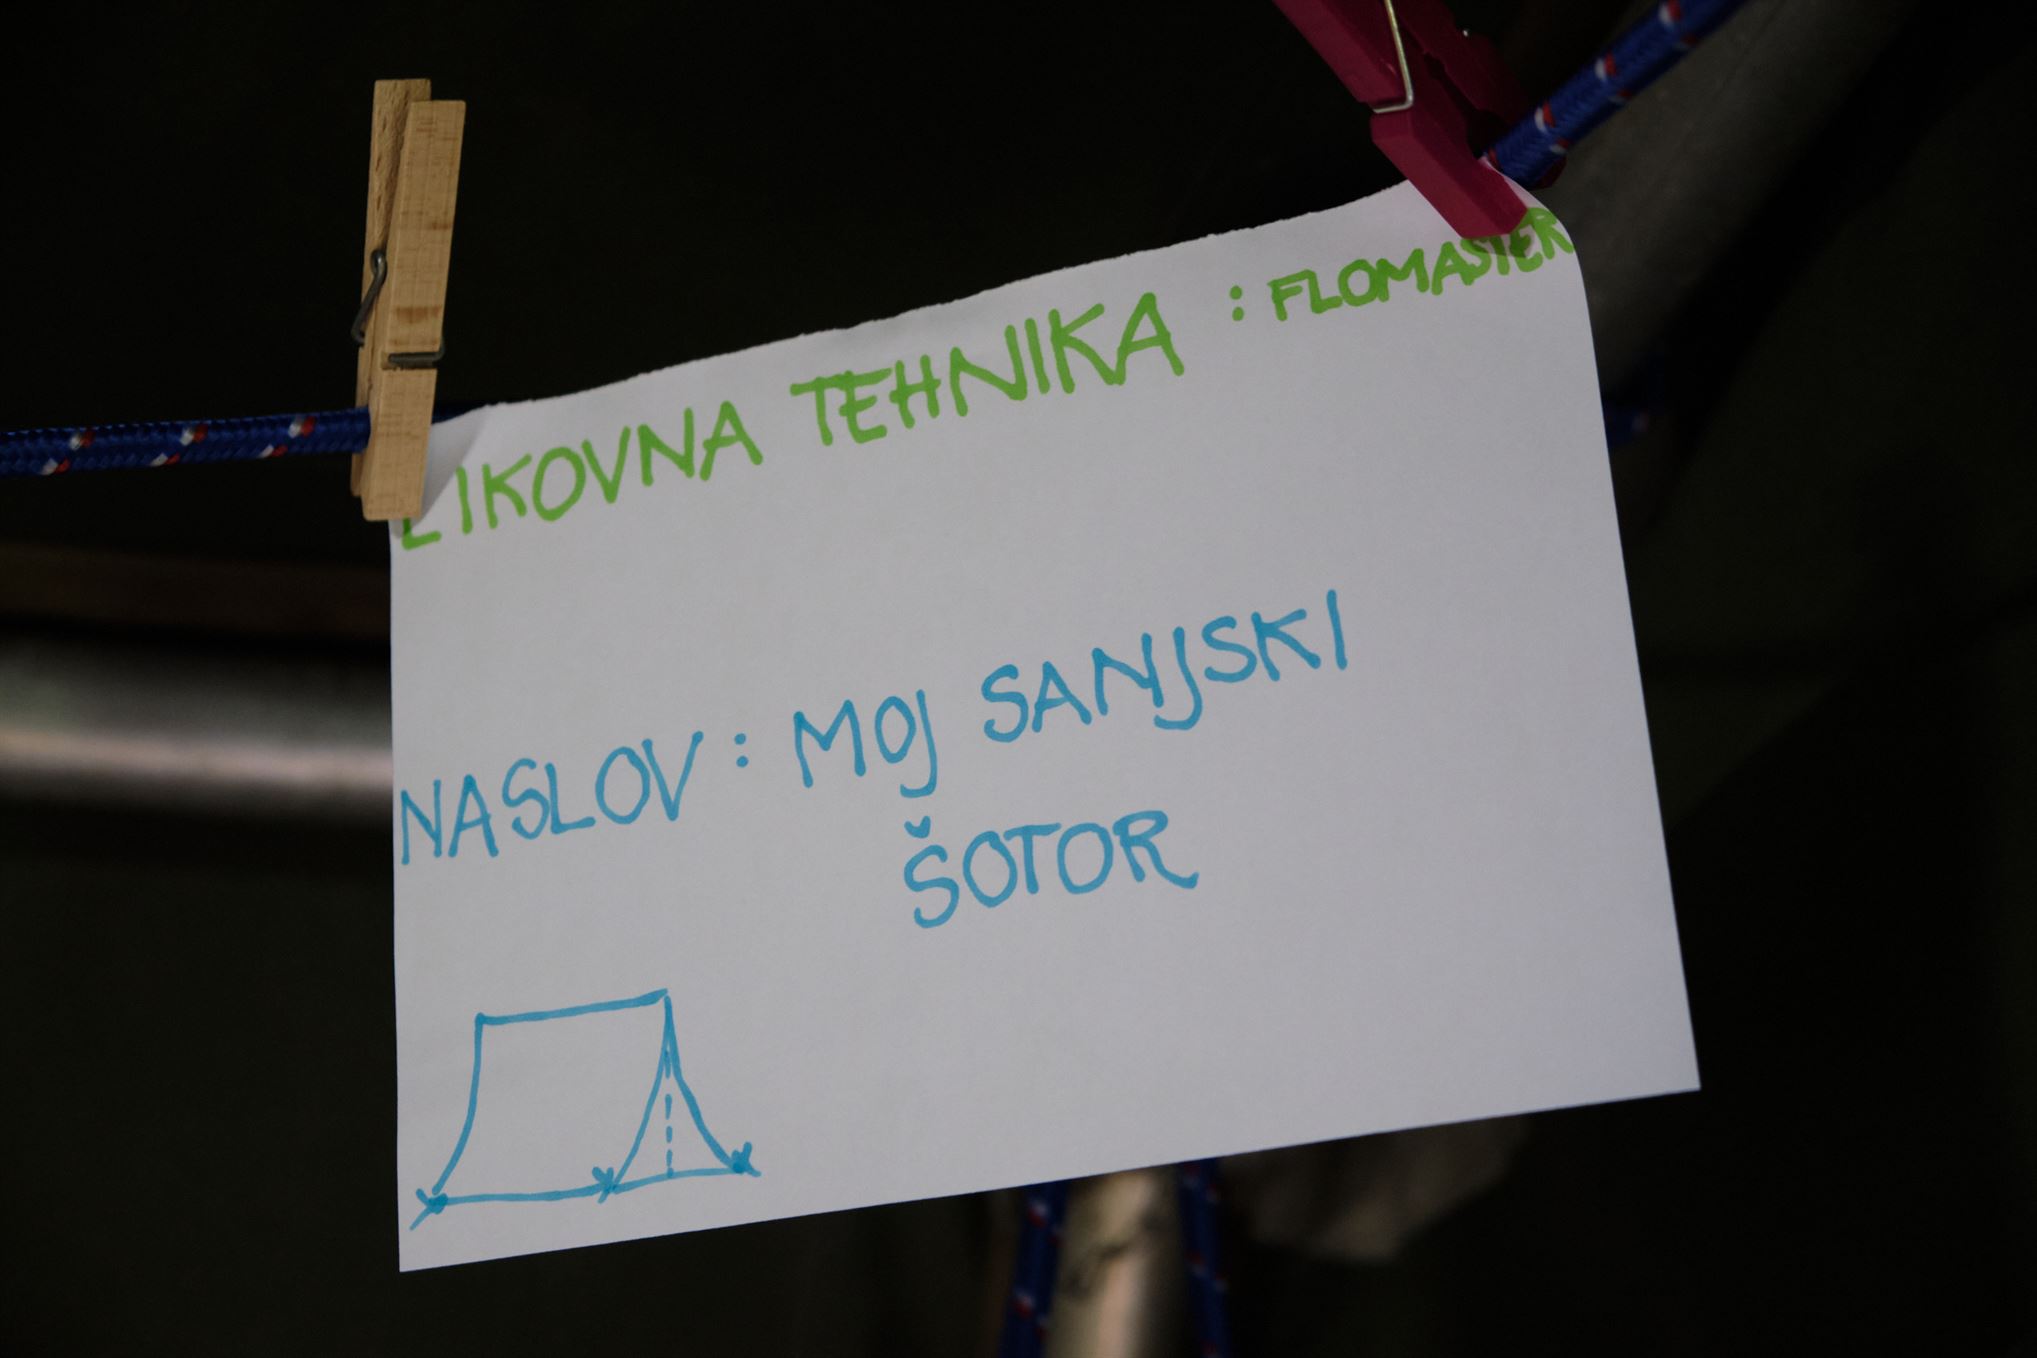 LIKOVNA TEHNIKA : FLOMASTER
NASLOV : MOJ SANJSKI
ŠOTOR